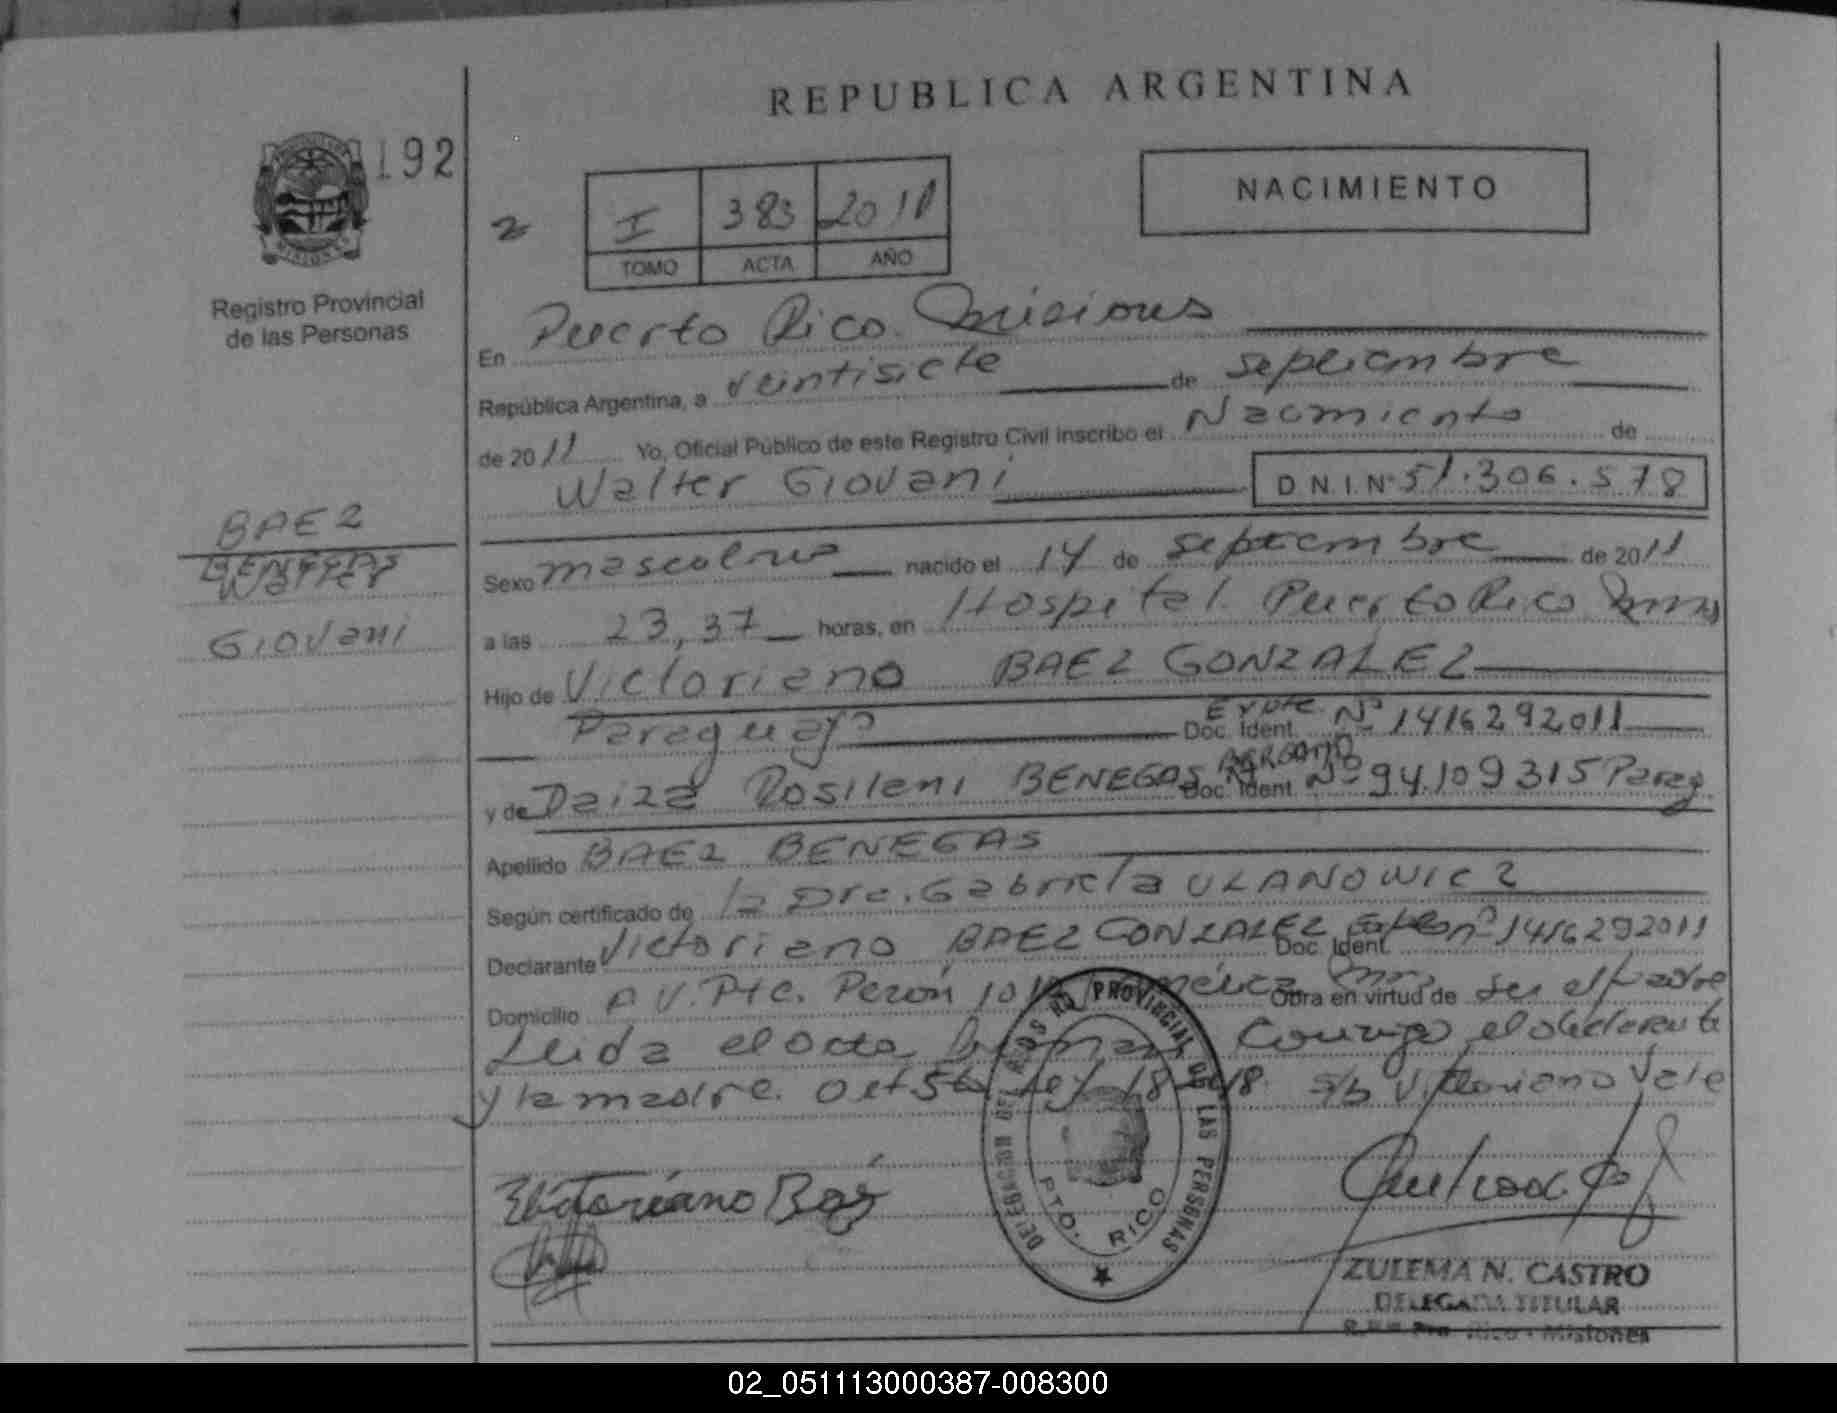 REPUBLICA ARGENTINA
192
NACIMIENTO
2
I 383 2011
TOMO ACTA AÑO
Registro Provincial
de las Personas
En Puerto Rico Misiones
República Argentina, a veintisiete de septiembre
de 2011 Yo, Oficial Público de este Registro Civil inscribo el Nacimiento de
Walter Giovani D N.I.Nº 51.306.578
BAEZ
BENEGAS
Walter
Giovani
Sexo masculino nacido el 14 de septiembre de 2011
a las 23,37 horas, en Hospital Puerto Rico Mnes
Hijo de Victoriano BAEZ GONZALEZ
Paraguayo Doc. Ident. Expte Nº 1416292011
y de Daiza Rosileni BENEGAS Doc. Ident. Nº 94.109315 Parag
Apellido BAEZ BENEGAS
Según certificado de la Dra. Gabriela ULANOWICZ
Declarante Victoriano BAEZ GONZALEZ Doc. Ident. Expte nº 1416292011
Domicilio AV. Pte. Perón Obra en virtud de ser el padre
Leida el acta firman Conmigo el declarante
y la madre. 18 s/b Victoriano Vale
DELEGACION DEL REGISTRO PROVINCIAL DE LAS PERSONAS
PTO. RICO
Victoriano Baez
ZULEMA N. CASTRO
DELEGADA TITULAR
Pto Rico - Misiones
02_051113000387-008300